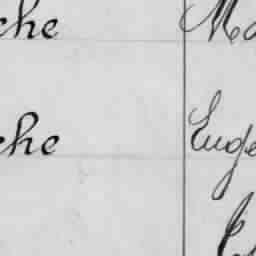 che Ma
che Euge